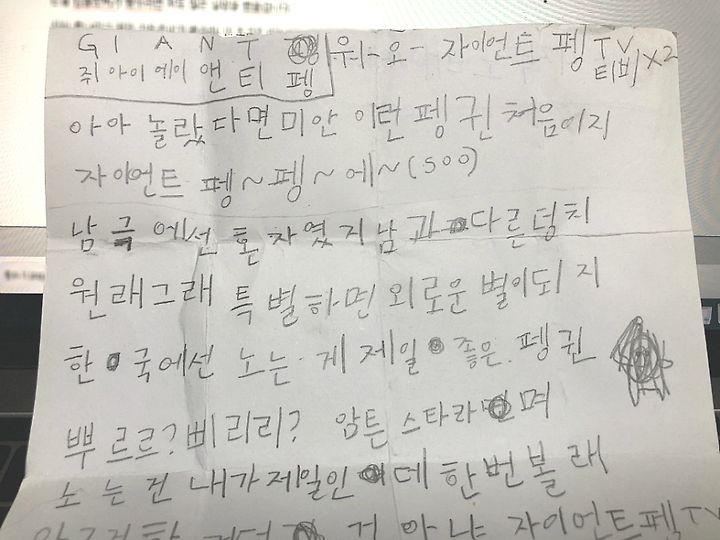 G I A N T 펭 워-오- 자이언트 펭 TV X2
쥐 아이 에이 앤 티 펭 티비
아아 놀랐다면미안 이런펭귄처음이지
자이언트 펭~펭~에~(soo)
남극에선 혼자였지남과다른덩치
원래그래 특별하면 외로운 별이되지
한국에선 노는 게 제일 좋은 펭귄
뿌르르?삐리리? 암튼 스타라며
노는건 내가제일인데 한번볼래
거 아냐 자이언트펭TV